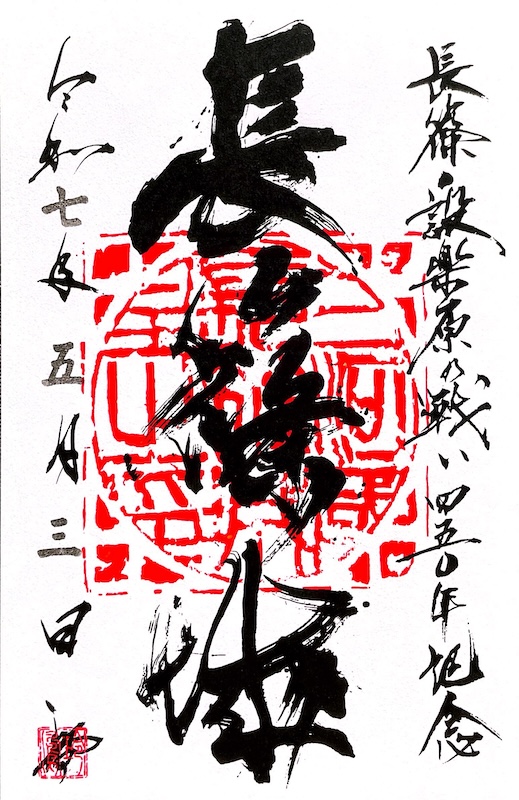 長篠・設楽原の戦い四五〇年記念
長篠城
令和七年五月三日